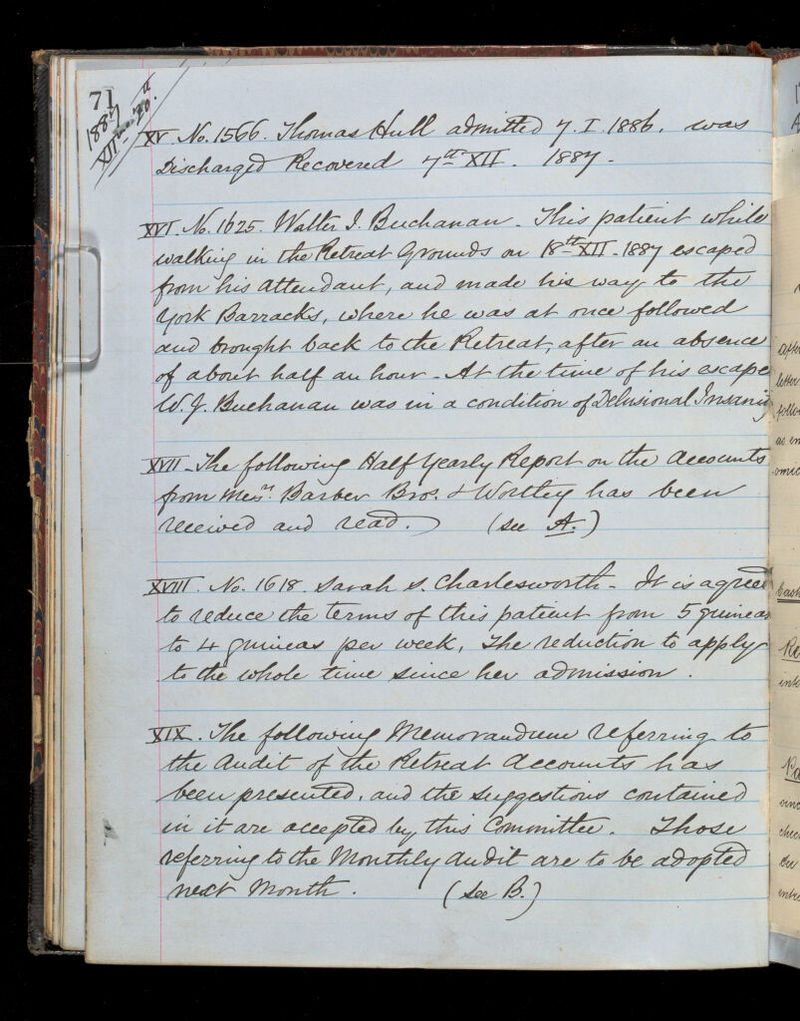 71
1887
XII mo. 20.
XV. No. 1566. Thomas Hull admitted 7. I. 1886. was
Discharged Recovered 7th XII. 1887.
XVI. No. 1625. Walter J. Buchanan. This patient while
walking in the Retreat Grounds on 18th XII. 1887 escaped
from his attendant, and made his way to the
York Barracks, where he was at once followed
and brought back to the Retreat, after an absence
of about half an hour. At the time of his escape
W. J. Buchanan was in a condition of Delusional Insanity
XVII. The following Half Yearly Report on the Accounts
from Messrs. Barber Bros. & Wortley has been
received and read. (see A.)
XVIII. No. 1618. Sarah S. Charlesworth. It is agreed
to reduce the terms of this patient from 5 guineas
to 4 guineas per week, The reduction to apply
to the whole time since her admission.
XIX. The following Memorandum referring to
the Audit of the Retreat Accounts has
been presented, and the suggestions contained
in it are accepted by this Committee. Those
referring to the Monthly Audit are to be adopted
next Month. (See B.)